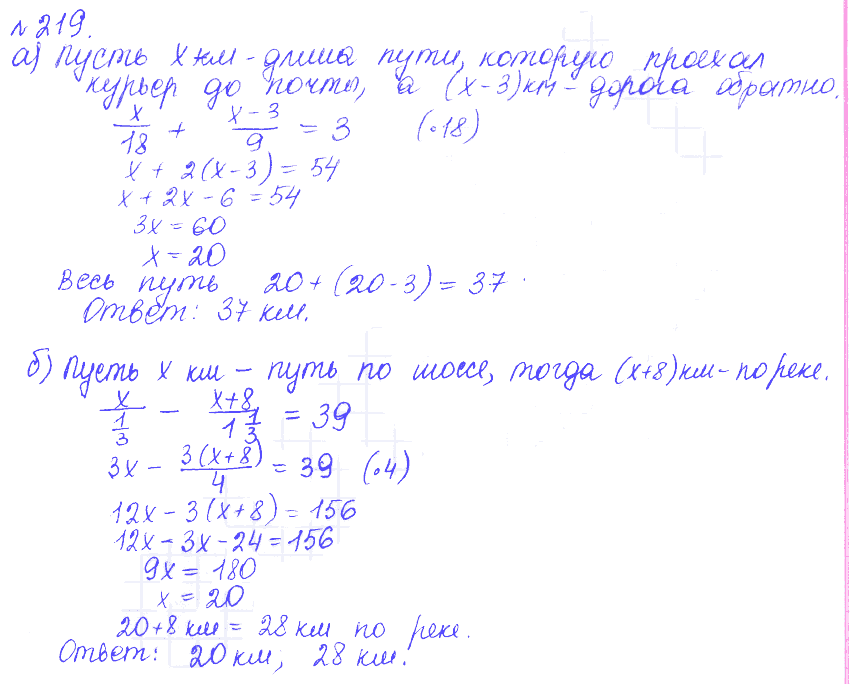 № 219.
а) Пусть x км - длина пути, которую проехал
курьер до почты, а (x-3) км - дорога обратно.
x/18 + (x-3)/9 = 3 (·18)
x + 2(x-3) = 54
x + 2x - 6 = 54
3x = 60
x = 20
Весь путь 20 + (20-3) = 37.
Ответ: 37 км.
б) Пусть x км - путь по шоссе, тогда (x+8) км - по реке.
x/(1/3) - (x+8)/(1 1/3) = 39
3x - 3(x+8)/4 = 39 (·4)
12x - 3(x+8) = 156
12x - 3x - 24 = 156
9x = 180
x = 20
20+8 км = 28 км по реке.
Ответ: 20 км; 28 км.